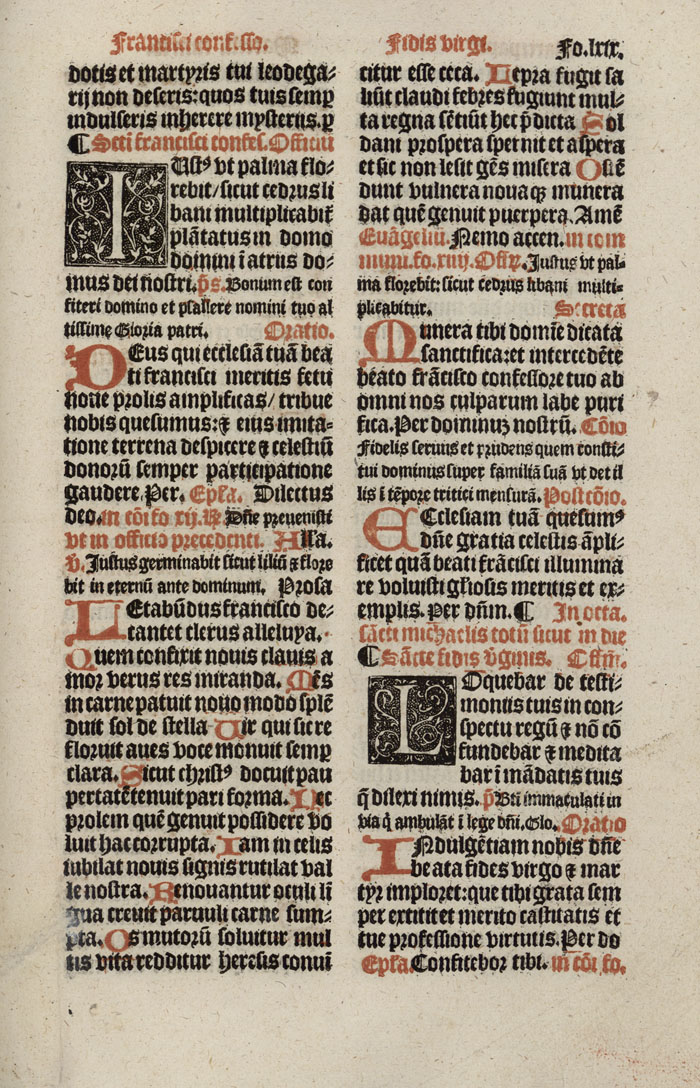 Francisci confesso.
Fidis virgi.
Fo.lxix.
dotis et martyris tui leodega⸗
rij non deseris:quos tuis semp̲
indulseris inherere mysteriis.p̲
¶ Scti francisci confes. Officiū
IUstꝰ vt palma flo⸗
rebit/sicut cedrus li
bani multiplicabit᷑
plātatus in domo
domini ī atrus do⸗
mus dei nostri. p̄s. Bonum est con
fiteri domino et psallere nomini tuo al
tissime Gloria patri. Oratio.
DEus qui ecclesiā tuā bea
ti francisci meritis fetu
noue prolis amplificas/ tribue
nobis quesumus:⁊ eius imita⸗
tione terrena despicere ⁊ celestiū
donorū semper participatione
gaudere.Per. Epl̄a. Dilectus
deo.in cōi fo xij.℟ Dn̄e preuenisti
vt in officio precedenti. Alla.
℣. Justus germinabit sicut liliū ⁊ flore
bit in eternū ante dominum. Prosa
LEtabūdus francisco de⸗
cantet clerus alleluya.
Quem confixit nouis clauis a
mor verus res miranda. Mēs
in carne patuit nouo modo splē
duit sol de stella Uir qui sic re
floruit aues voce monuit semp̲
clara. Sicut christꝰ docuit pau
pertatē tenuit pari forma. Nec
prolem quē genuit possidere vo
luit hac corrupta. Iam in celis
iubilat nouis signis rutilat val
le nostra. Renouantur oculi lī
gua creuit paruuli carne sum⸗
pta. Os mutorū soluitur mul
tis vita redditur heresis conuī
citur esse ceca. Lepra fugit sa
liūt claudi febres fugiunt mul⸗
ta regna sētiūt hec p̄dicta Sol
dani prospera spernit et aspera
et sic non lesit gēs misera Ostē
dunt vulnera noua qꝫ munera
dat quē genuit puerpera. Amē
Euāgeliū. Nemo accen. in com
muni.fo.xiiij. Offr̄. Justus vt pal⸗
ma florebit: sicut cedrus libani multi⸗
plicabitur. Secreta
MUnera tibi domīe dicata
sanctifica:et intercedēte
beato frācisco confessore tuo ab
omni nos culparum labe puri
fica.Per dominuꝫ nostrū. Cōio
Fidelis seruus et prudens quem consti⸗
tui dominus super familiā suā vt det il
lis ī tēpore tritici mensurā. Postcōio.
ECclesiam tuā quesumꝰ
dn̄e gratia celestis āpli⸗
ficet quā beati frācisci illumina
re voluisti gl̄iosis meritis et ex⸗
emplis. Per dn̄m. ¶ In octa.
sācti michaelis totū sicut in die
¶ Sācte fidis v̄ginis. Offm̄.
LOquebar de testi⸗
moniis tuis in con⸗
spectu regū ⁊ nō cō
fundebar ⁊ medita
bar ī mādatis tuis
q̄ dilexi nimis. p̄ Bti immaculati in
via q̄ ambulāt ī lege dn̄i. Glo. Oratio
INdulgētiam nobis dn̄e
beata fides virgo ⁊ mar
tyr imploret:que tibi grata sem
per extitit et merito castitatis et
tue professione virtutis. Per do
Epl̄a. Confitebor tibi. in cōi fo.